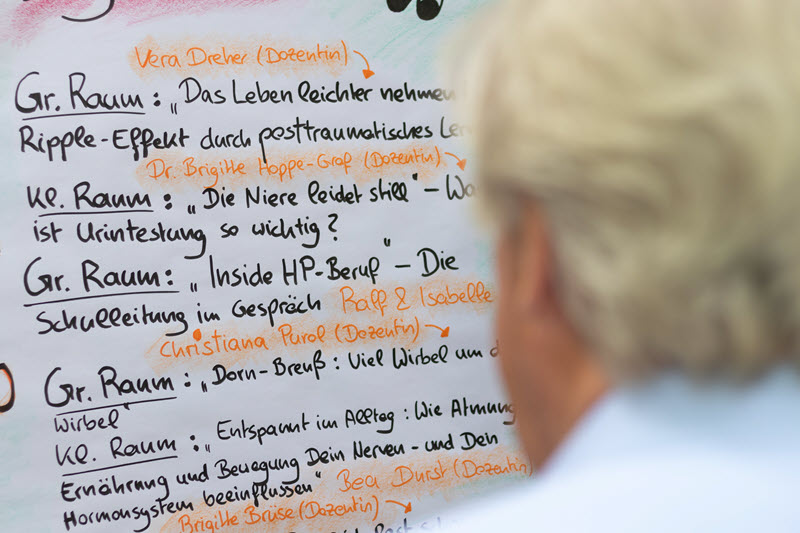 Vera Dreher (Dozentin)
Gr. Raum: „Das Leben leichter nehmen
Ripple-Effekt durch posttraumatisches
Dr. Brigitte Hoppe-Graf (Dozentin)
Kl. Raum: „Die Niere leidet still" -
ist Urintestung so wichtig?
Gr. Raum: „Inside HP-Beruf" - Die
Schulleitung im Gespräch Ralf & Isabelle
Christiana Purol (Dozentin)
Gr. Raum: „Dorn-Breuß: Viel Wirbel um
Wirbel"
Kl. Raum: „Entspannt im Alltag: Wie Atmung
Ernährung und Bewegung Dein Nerven- und Dein
Hormonsystem beeinflussen" Bea Durst (Dozentin)
Brigitte Brüse (Dozentin)